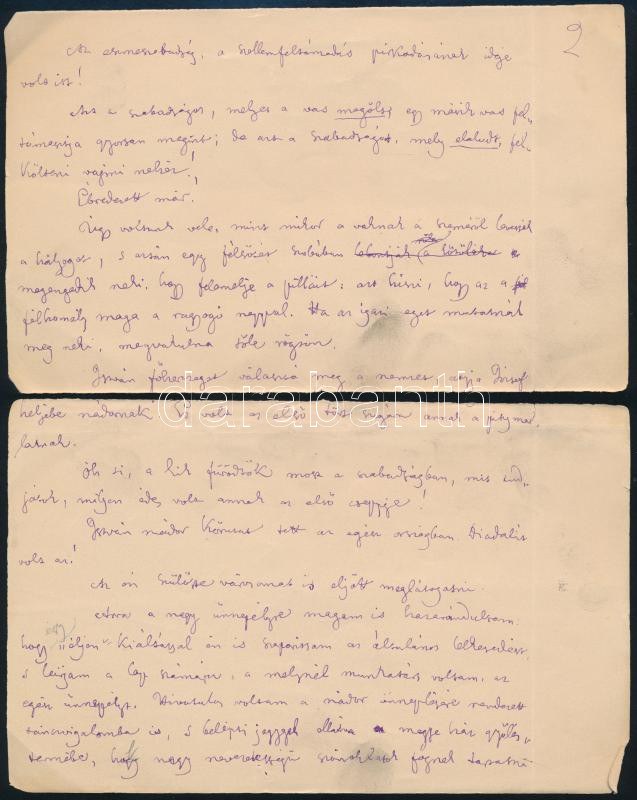 2
Az eszmeszabadság, a szellemfeltámadás pirkadásának ideje
volt ez!
Azt a szabadságot, melyet a vas megölt, egy másik vas fel-
támasztja gyorsan megint; de azt a szabadságot, mely elaludt, fel-
költeni vajmi nehéz!
Ébredezett már.
Úgy voltunk vele, mint mikor a vaknak a szeméről leveszik
a hályogot, s aztán egy félsötét szobában
megengedik neki, hogy felemelje a pilláit: azt hiszi, hogy az a
félhomály maga a ragyogó nappal. Ha az igazi eget mutatnák
meg neki, megvakulna tőle rögtön.
István főherczeget választá meg a nemzet atyja József
helyébe nádornak. Ez volt az első sugár annak a pitymal-
latnak.
Óh ti, a kik fürödtök most a szabadságban, mit tud-
játok, milyen édes volt annak az első cseppje!
István nádor körutat tett az egész országban. Diadalút
volt az!
Az én szülötte városomat is eljött meglátogatni.
Arra a nagy ünnepélyre magam is hazarándultam.
hogy egy "éljen" kiáltással én is szaporítsam az általános lelkesedést,
s leírjam a lap számára, a melynél munkatárs voltam, az
egész ünnepélyt. Hivatalos voltam a nádor ünneplésére rendezett
tánczvigalomba is, s belépti jegygyel ellátva a megye ház gyűlés-
termébe, hogy nagy nevezetességű szónoklatok fognak tartatni
darabanth